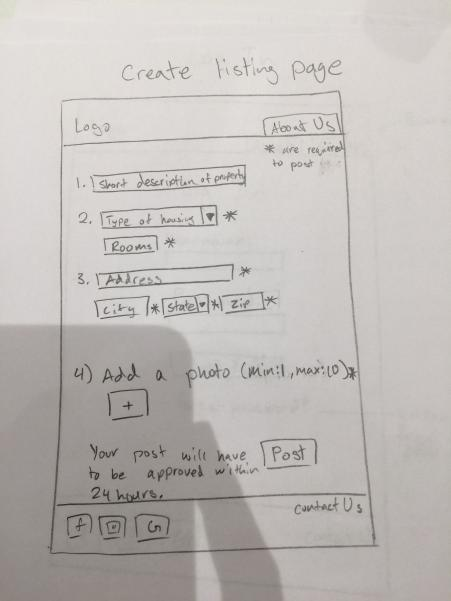 Create listing page
Logo
About Us
* are required
to post
1. Short description of property
2. Type of housing ▼ *
Rooms *
3. Address *
City * State ▼ * Zip *
4) Add a photo (min:1, max:10)*
+
Your post will have Post
to be approved within
24 hours.
Contact Us
f
G